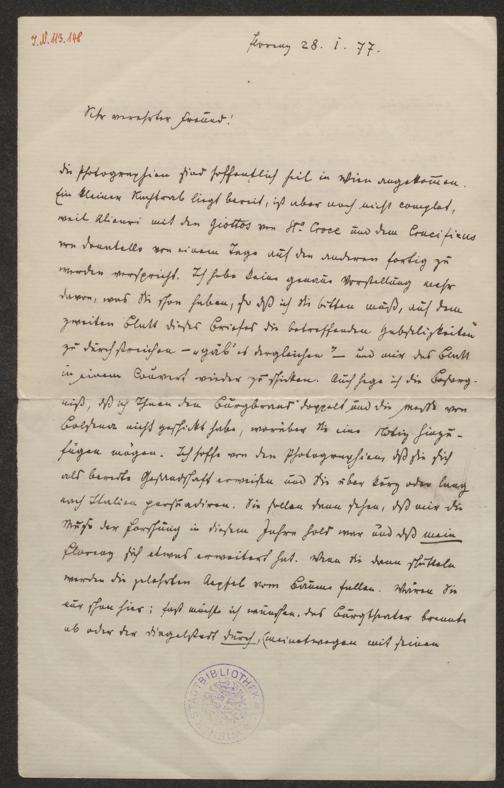 J.N. 113.148
Florenz 28. I. 77.
Sehr verehrter Freund!
die Photographien sind hoffentlich heil in Wien angekommen.
Ein kleiner Nachtrab liegt bereit, ist aber noch nicht complet,
weil Alinari mit den Giottos von Sta Croce und dem Crucifixus
von Donatello von einem Tage auf den anderen fertig zu
werden verspricht. Ich habe keine genaue Vorstellung mehr
davon, was Sie schon haben, so daß ich Sie bitten muß, auf dem
zweiten Blatt dieses Briefes die betreffenden Habseligkeiten
zu durchstreichen – "gäb' es dergleichen"? – und mir das Blatt
in einem Couvert wieder zu schicken. Auch hege ich die Besorg-
niß, daß ich Ihnen den Burgbrand doppelt und die Messe von
Bolsena nicht geschickt habe, worüber Sie eine Notiz hinzu-
fügen mögen. Ich hoffe von den Photographien, daß sie sich
als beredte Gesandschaft erweisen und Sie über kurz oder lang
nach Italien persuadiren. Sie sollen dann sehen, daß mir die
Muse der Forschung in diesem Jahre hold war und daß mein
Florenz sich etwas erweitert hat. Wenn Sie dann schütteln
werden die gelehrten Aepfel vom Baume fallen. Wären Sie
nur schon hier; fast möcht ich wünschen, das Burgtheater brennte
ab oder der Dingelstedt durch, (meinetwegen mit seinen
STADTBIBLIOTHEK
WIEN